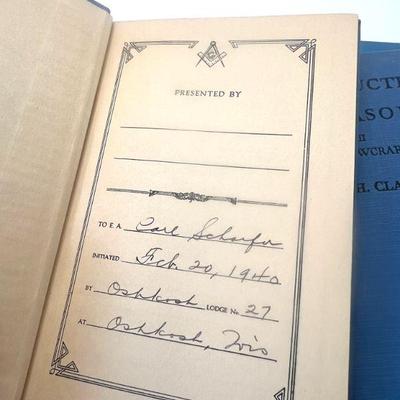 PRESENTED BY
TO E. A. Carl Schaefer
INITIATED Feb. 20, 1940
BY Oshkosh LODGE No. 27
AT Oshkosh, Wis
UCTI
ASO
H. CLA